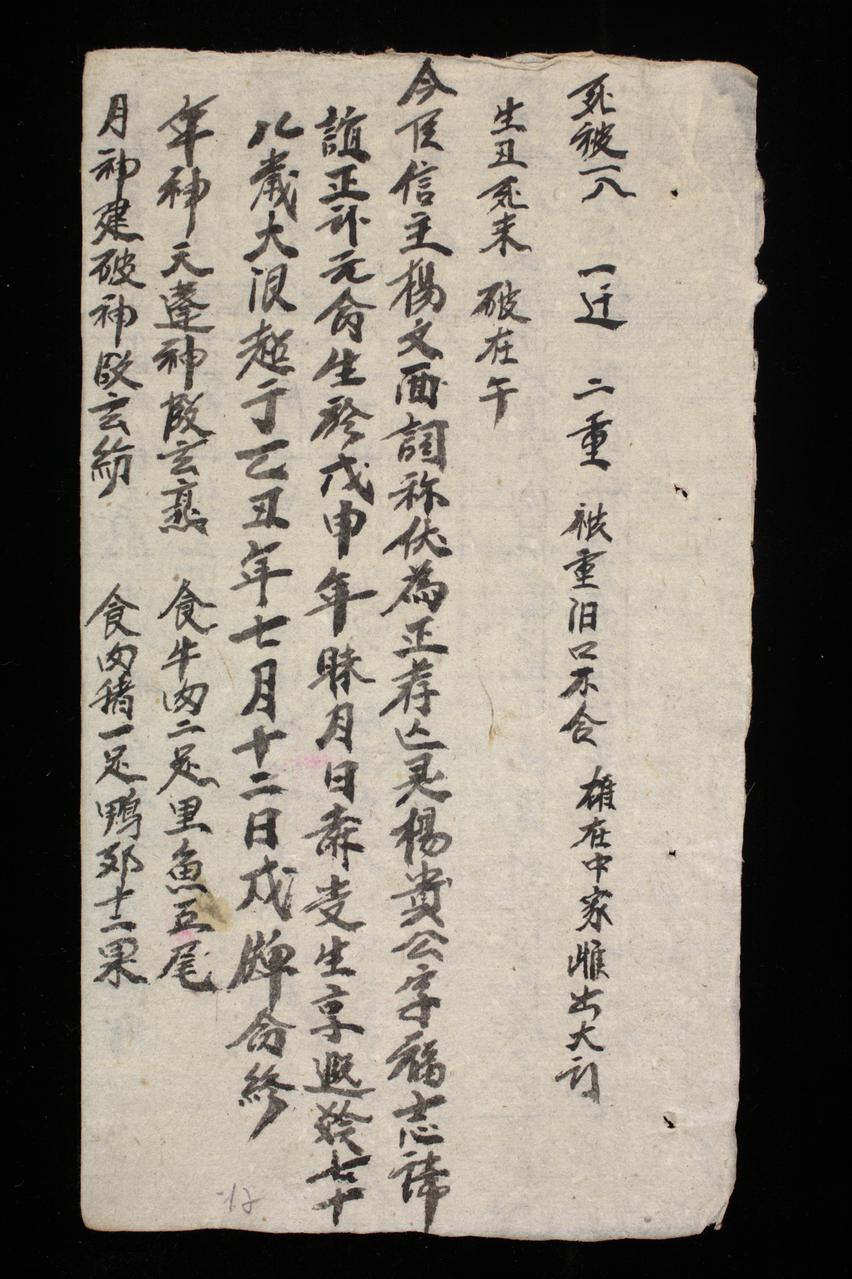 死被一八 一迁 二重 被重旧口不合 雄在中家惟出大討
生丑死未 破在午
今臣信主楊文面詞称伏為正荐亡灵楊貴公字福士志諱
誼正卟元命生於戊申年 月日 受生享遐 七十
八歲大限趍于乙丑年七月十二日戌牌命終
年神天蓬神殷玄 食牛肉二足里魚五尾
月神建破神殷玄紡 食肉猪一足鴨夘十二果